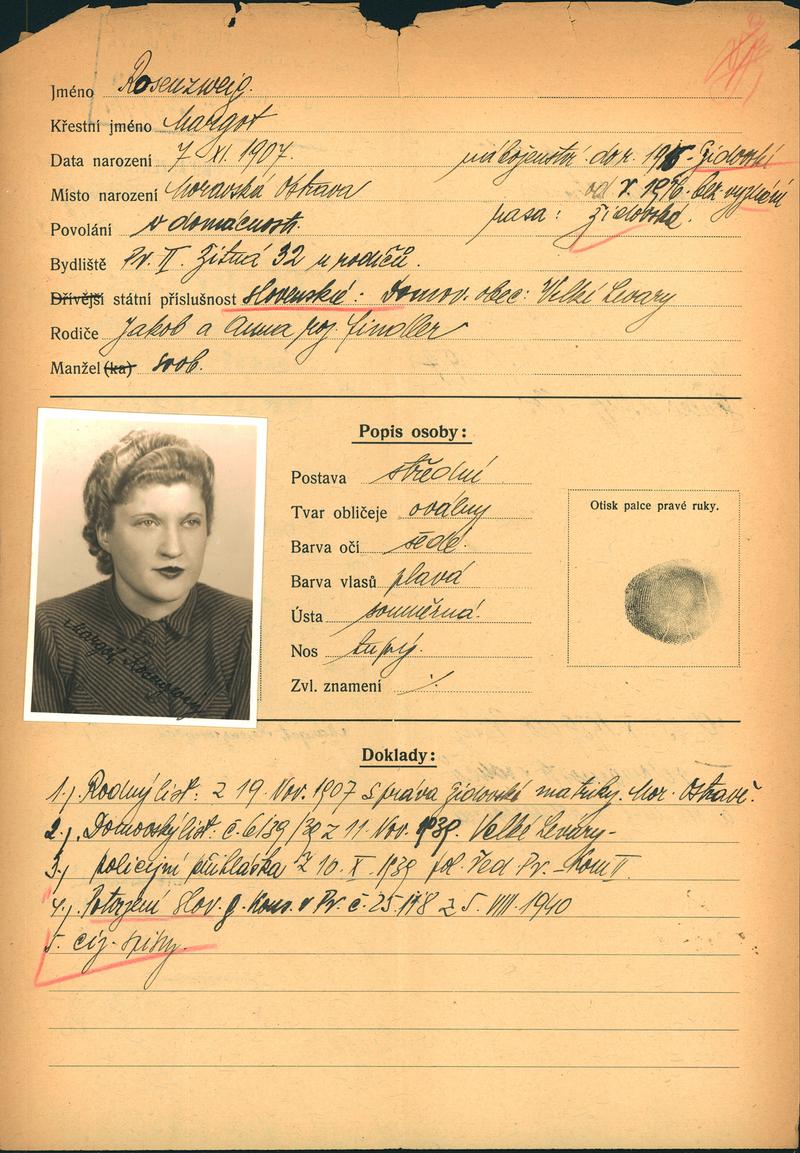 Jméno Rosenzweig.
Křestní jméno Margot
Data narození 7. XI. 1907. náboženství do r. židovské
Místo narození Moravská Ostrava od r. bez vyznání
Povolání v domácnosti. rasa: židovská.
Bydliště Pr. II. Žitná 32 u rodičů.
Dřívější státní příslušnost slovenská: Domov. obec: Velké Levary
Rodiče Jakob a Anna roz. Findler
Manžel (ka) svob.
Popis osoby:
Postava střední
Tvar obličeje oválný
Barva očí šedé.
Barva vlasů plavá
Ústa souměrná.
Nos tupý.
Zvl. znamení ⁒
Otisk palce pravé ruky.
Margot
Doklady:
1.) Rodný list: z 19. Nov. 1907 správa židovské matriky. Mor. Ostravě.
2.) Domovský list. č. 6139/39 z 11. Nov. 1939. Velké Leváry-
3.) policejní přihláška z 10. X. 1939 pol. řed. Pr. Kom II.
4.) Potvrzení Slov. g. Kons. v Pr. č. 25.178 z 5. VIII. 1940
5. ciz. spisy.